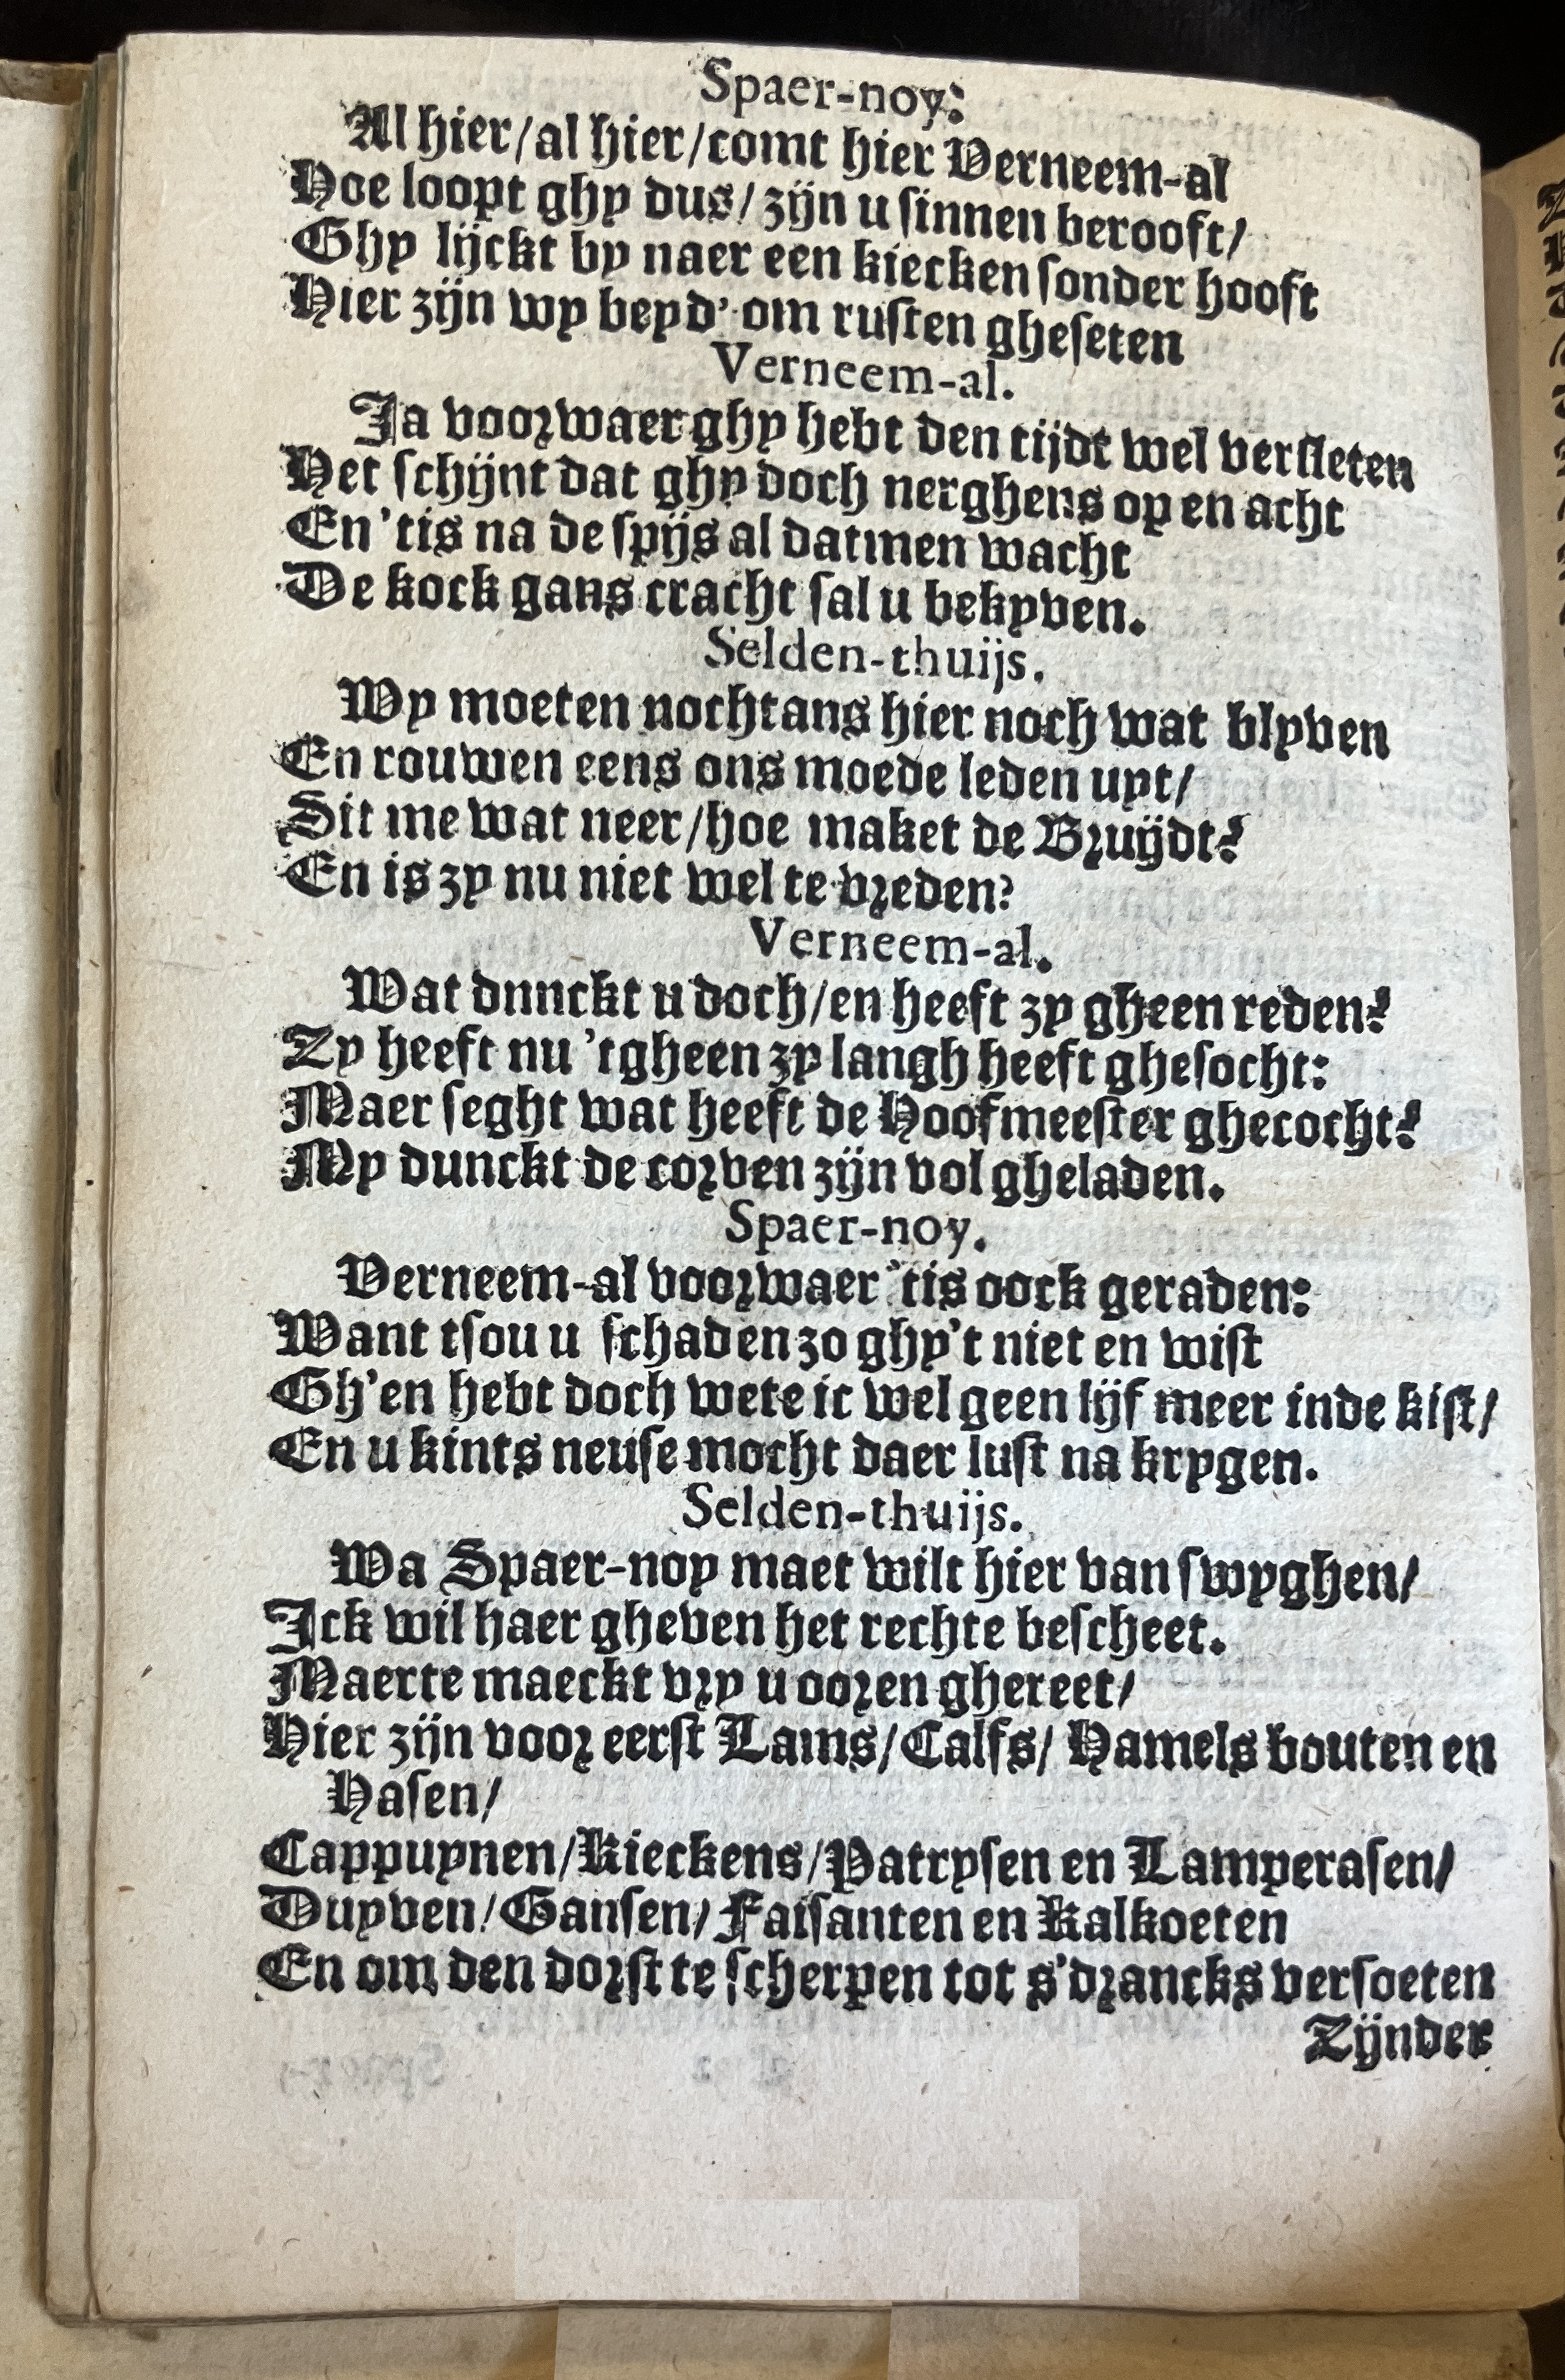 Spaer-noy:
Al hier/al hier/comt hier Verneem-al
Hoe loopt ghy dus/ zijn u sinnen berooft/
Ghy lijckt by naer een kiecken sonder hooft
Hier zijn wy beyd' om rusten gheseten
Verneem-al.
Ja voorwaer ghy hebt den tijdt wel versleten
Het schijnt dat ghy doch nerghens op en acht
En 'tis na de spijs al datmen wacht
De kock gans cracht sal u bekyven.
Selden-thuijs.
Wy moeten nochtans hier noch wat blyven
En rouwen eens ons moede leden uyt/
Sit me wat neer/hoe maket de Bruijdt?
En is zy nu niet wel te vreden?
Verneem-al.
Wat dnnckt u doch/en heeft zy gheen reden?
Zy heeft nu 'tgheen zy langh heeft ghesocht:
Maer seght wat heeft de Hoofmeester ghecocht?
My dunckt de corven zijn vol gheladen.
Spaer-noy.
Verneem-al voorwaer 'tis oock geraden:
Want tsou u schaden zo ghy't niet en wist
Gh'en hebt doch wete ic wel geen lijf meer inde kist/
En u kints neuse mocht daer lust na krygen.
Selden-thuijs.
Wa Spaer-noy maet wilt hier van swyghen/
Ick wil haer gheven het rechte bescheet.
Maerte maeckt vry u ooren ghereet/
Hier zijn voor eerst Lams/Calfs/ Hamels bouten en
Hasen/
Cappuynen/Kieckens/Patrysen en Lamperasen/
Duyven/Gansen/Faisanten en Kalkoeten
En om den dorst te scherpen tot s'drancks versoeten
Zijnder